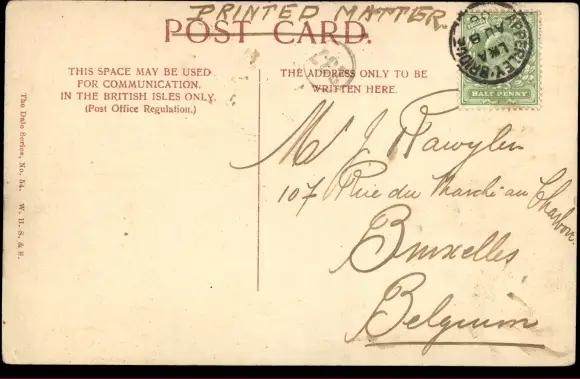 PRINTED MATTER
POST CARD.
THIS SPACE MAY BE USED
FOR COMMUNICATION.
IN THE BRITISH ISLES ONLY.
(Post Office Regulation.)
THE ADDRESS ONLY TO BE
WRITTEN HERE.
APPERLEY-BRIDGE
AU 8
HALF PENNY
J.
107 Rue du Marché au Charbon
Bruxelles
Belgium
The Dale Series, No. 54. W. H. S. & S.